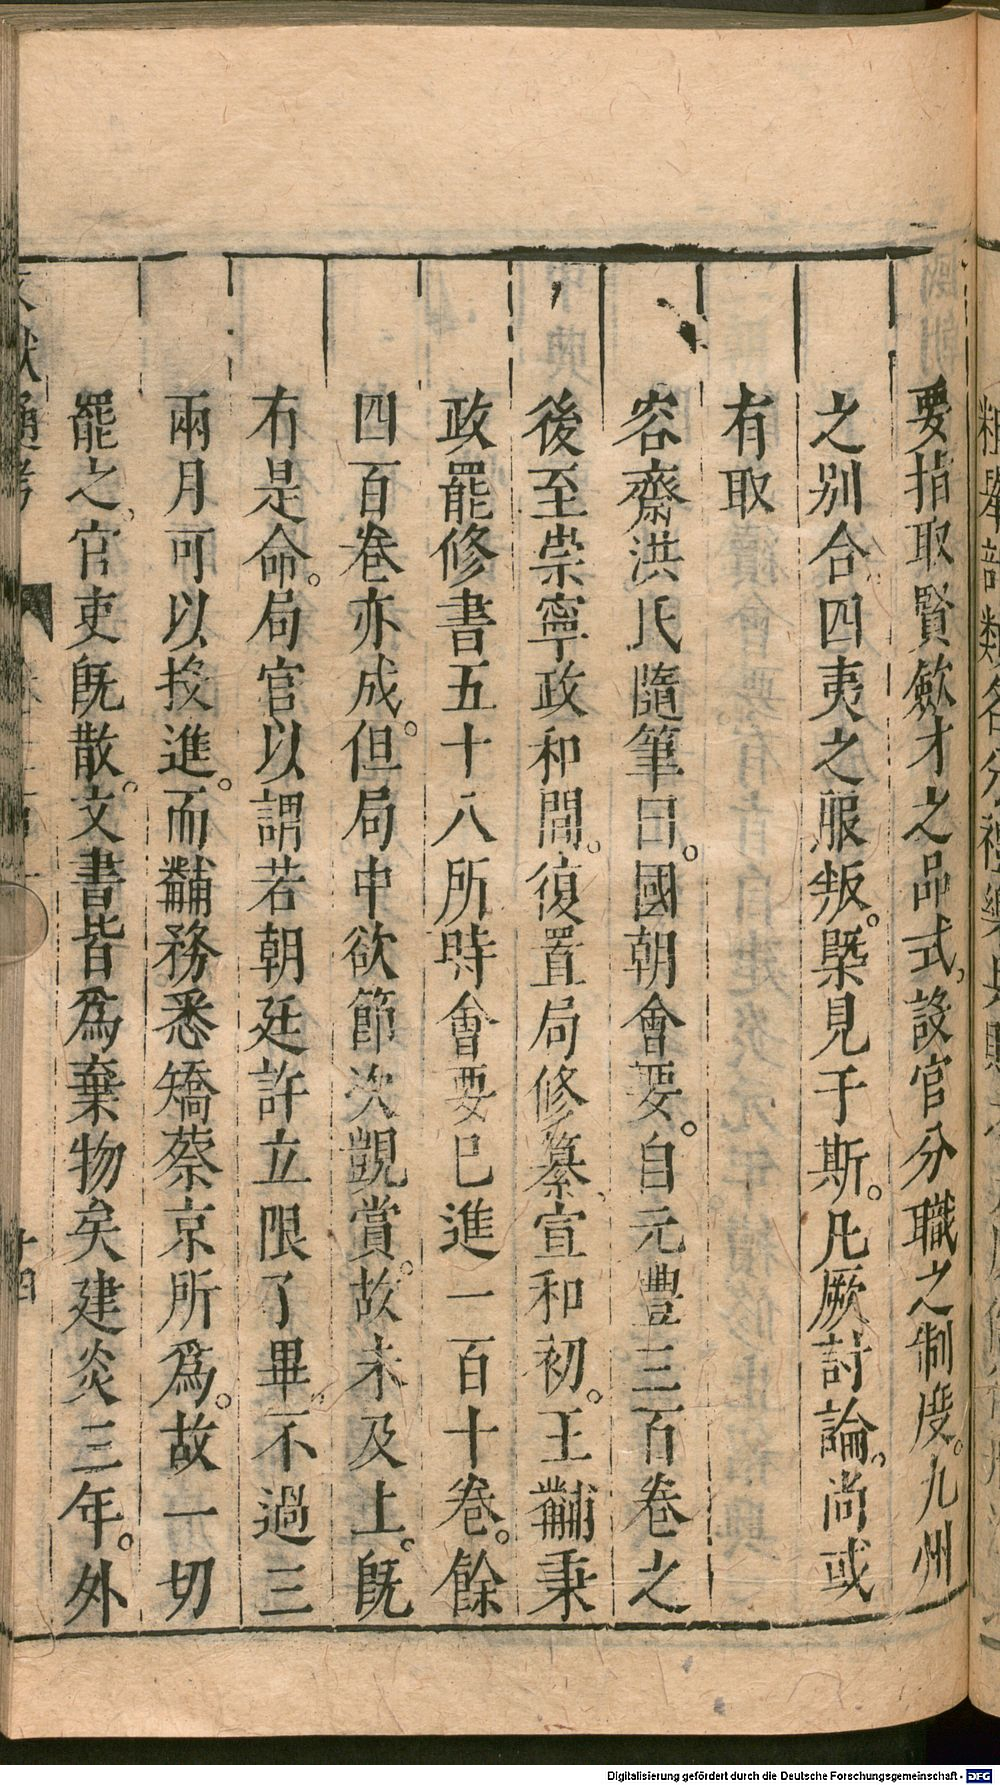 要指取賢斂才之品式設官分職之制度。九州
之别合四夷之服叛。槩見于斯。凡厥討論。尚或
有取
容齋洪氏隨筆曰。國朝會要。自元豐三百卷之
後至崇寧政和間。復置局修纂、宣和初。王黼秉
政罷修書五十八所時會要已進一百十卷。餘
四百卷亦成。但局中欲節次覬賞。故未及上。旣
有是命。局官以謂若朝廷許立限了畢不過三
兩月可以投進。而黼務悉矯蔡京所爲。故一切
罷之、官吏旣散。文書皆爲棄物矣建炎三年。外
文獻通考
十四
Digitalisierung gefördert durch die Deutsche Forschungsgemeinschaft - DFG